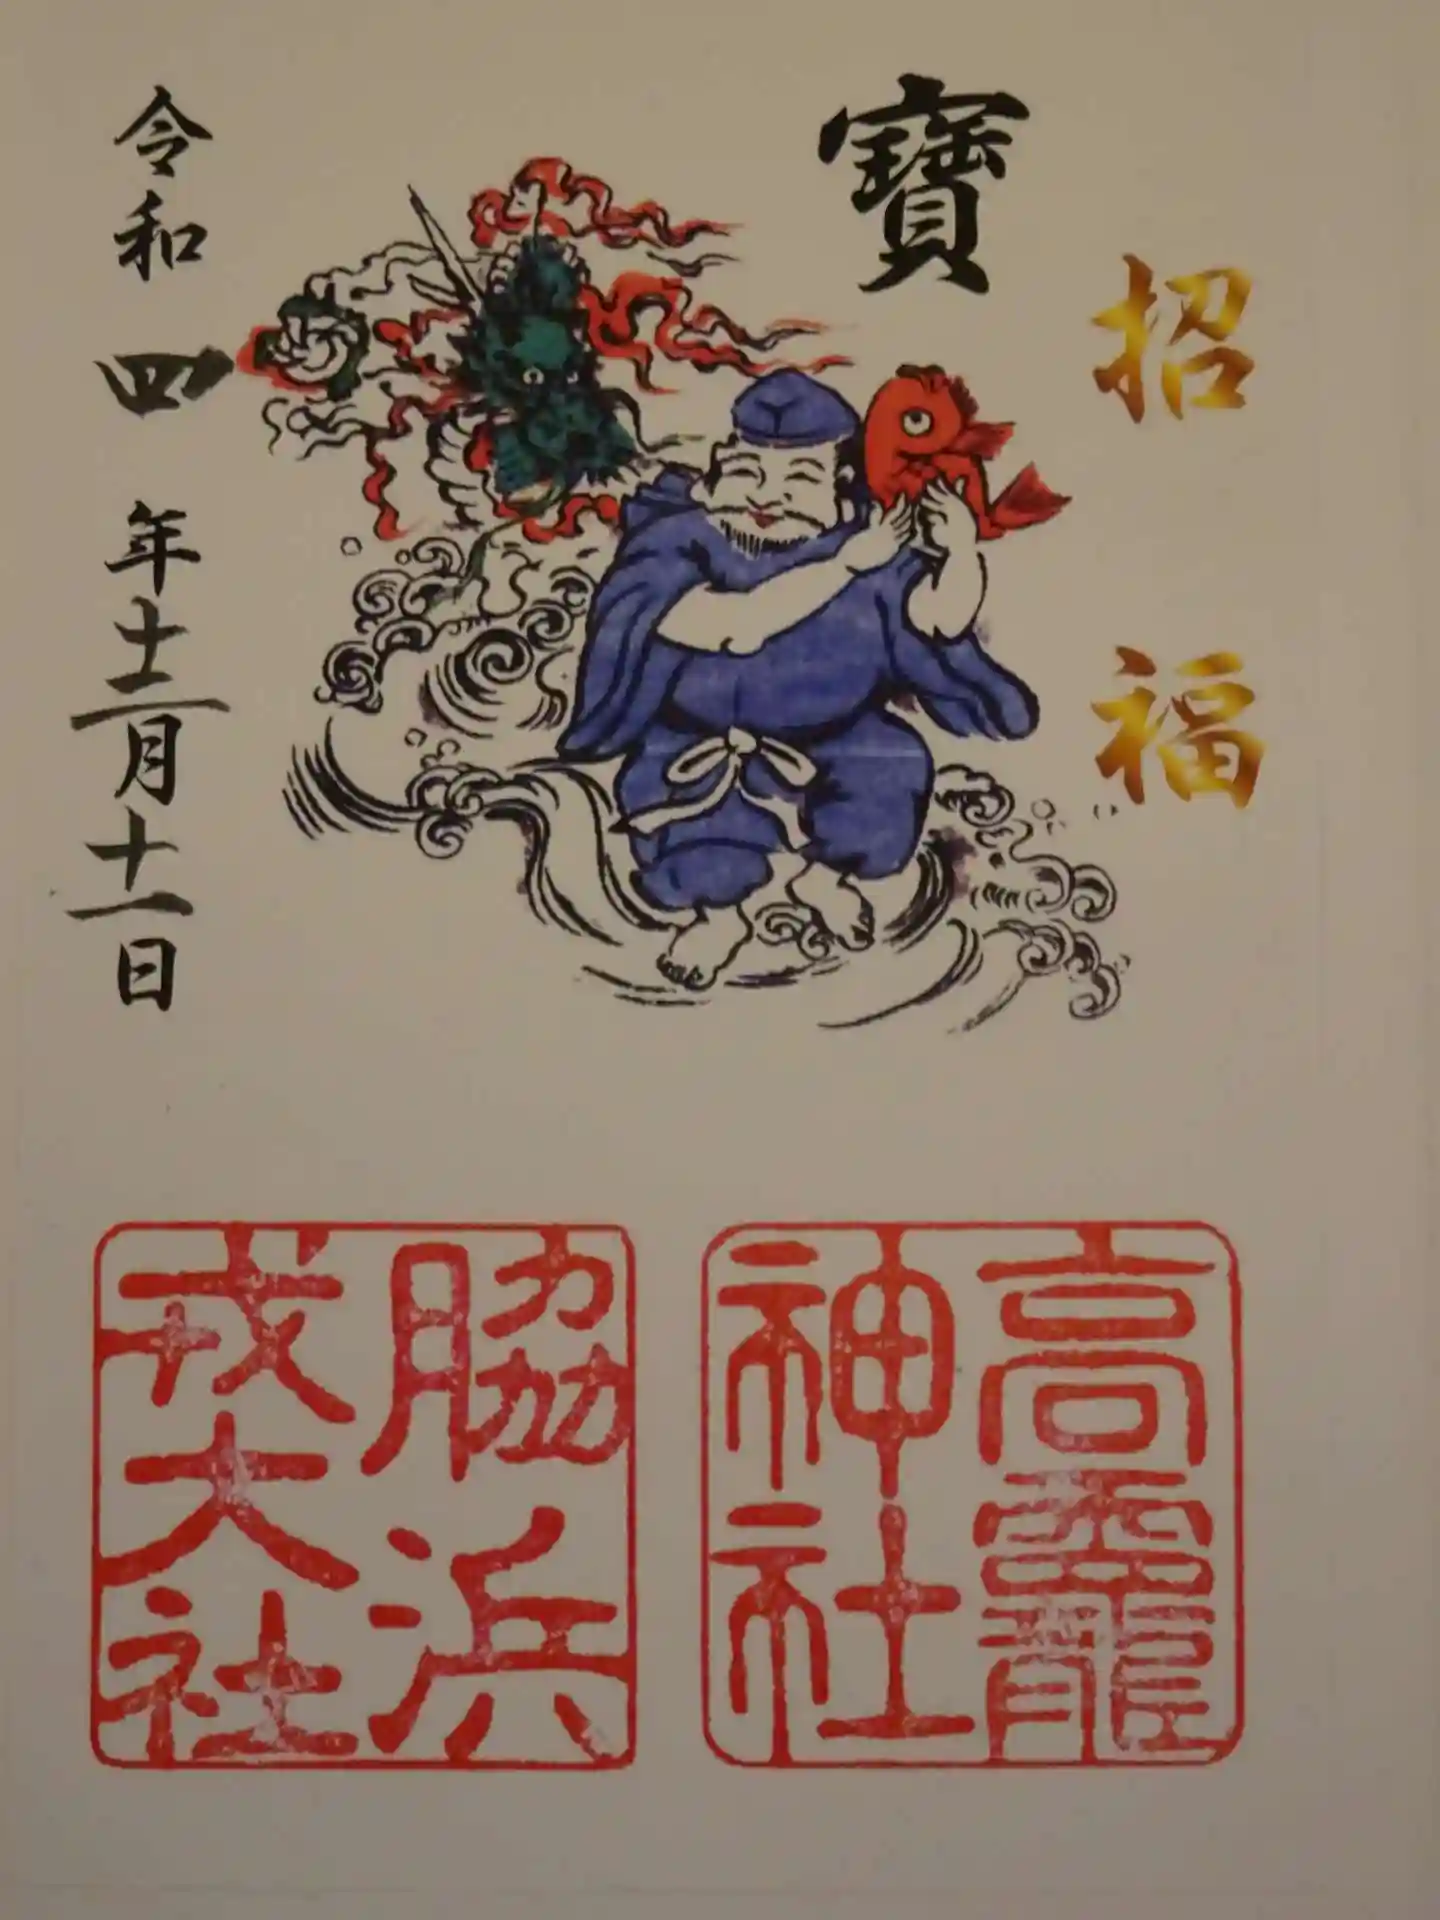 招福
寶
令和四年十二月十一日
高龗
神社
脇浜
戎大社